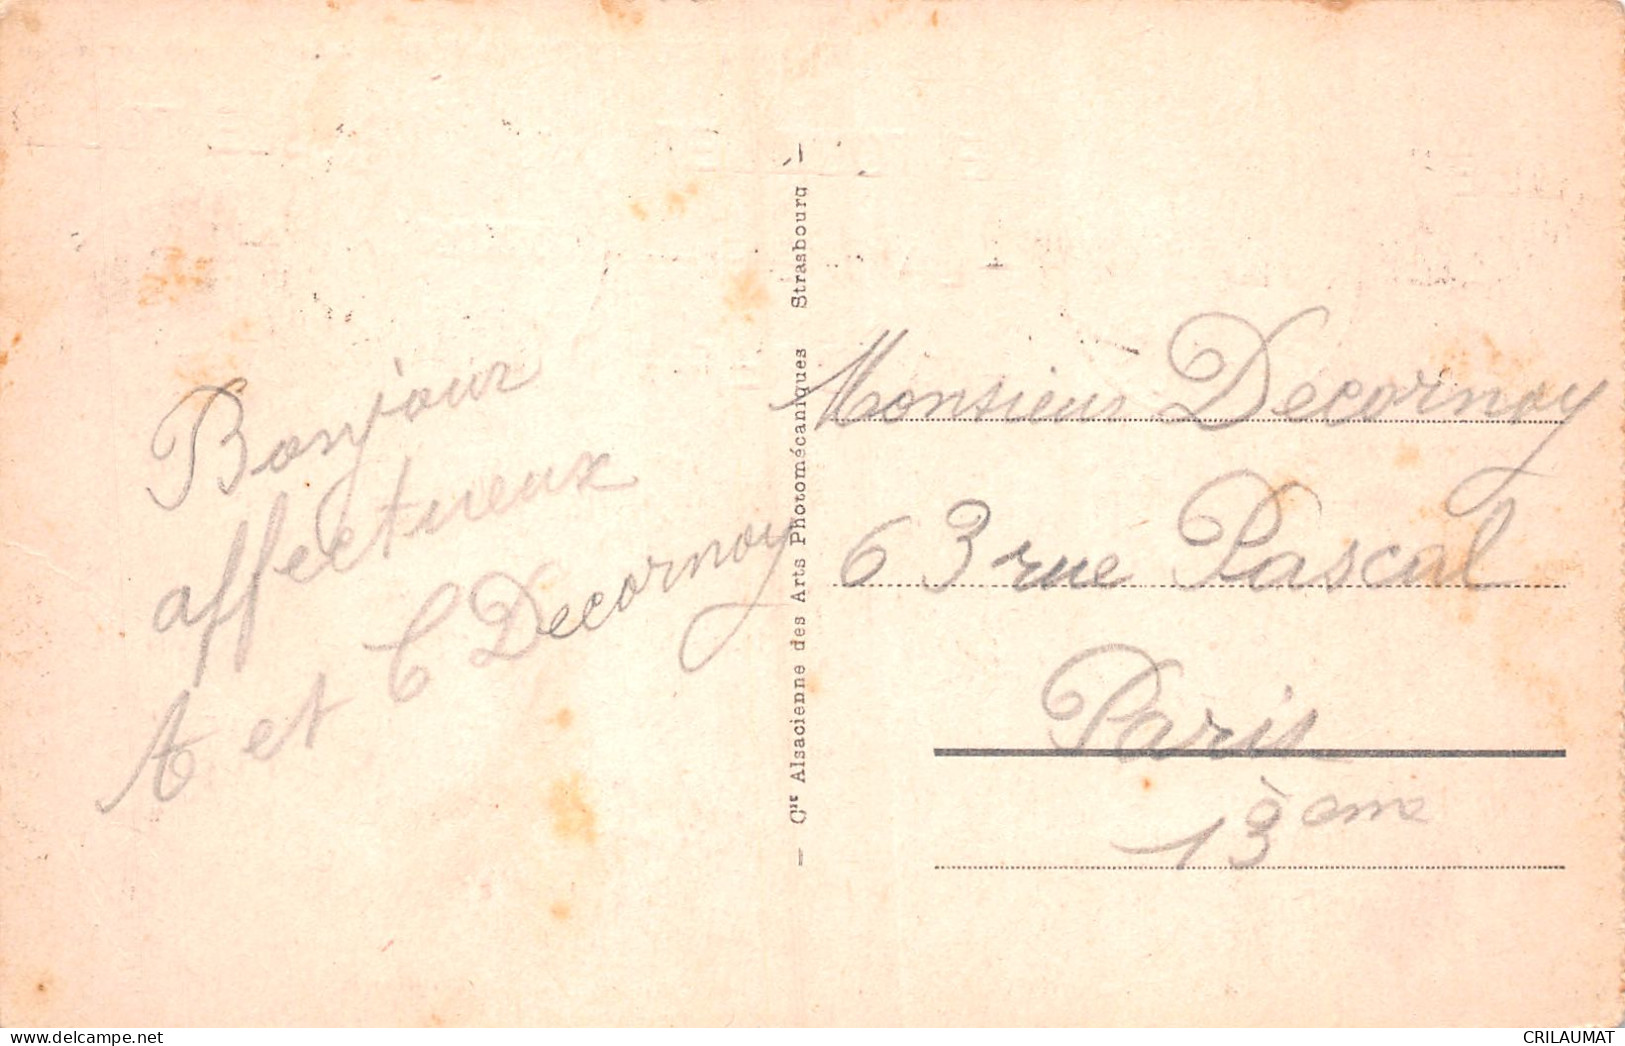 Bonjour
affectueux
A et C Decornoy
— Cie Alsacienne des Arts Photomécaniques Strasbourg —
Monsieur Decornoy
63 rue Pascal
Paris
13ème
CRILAUMAT